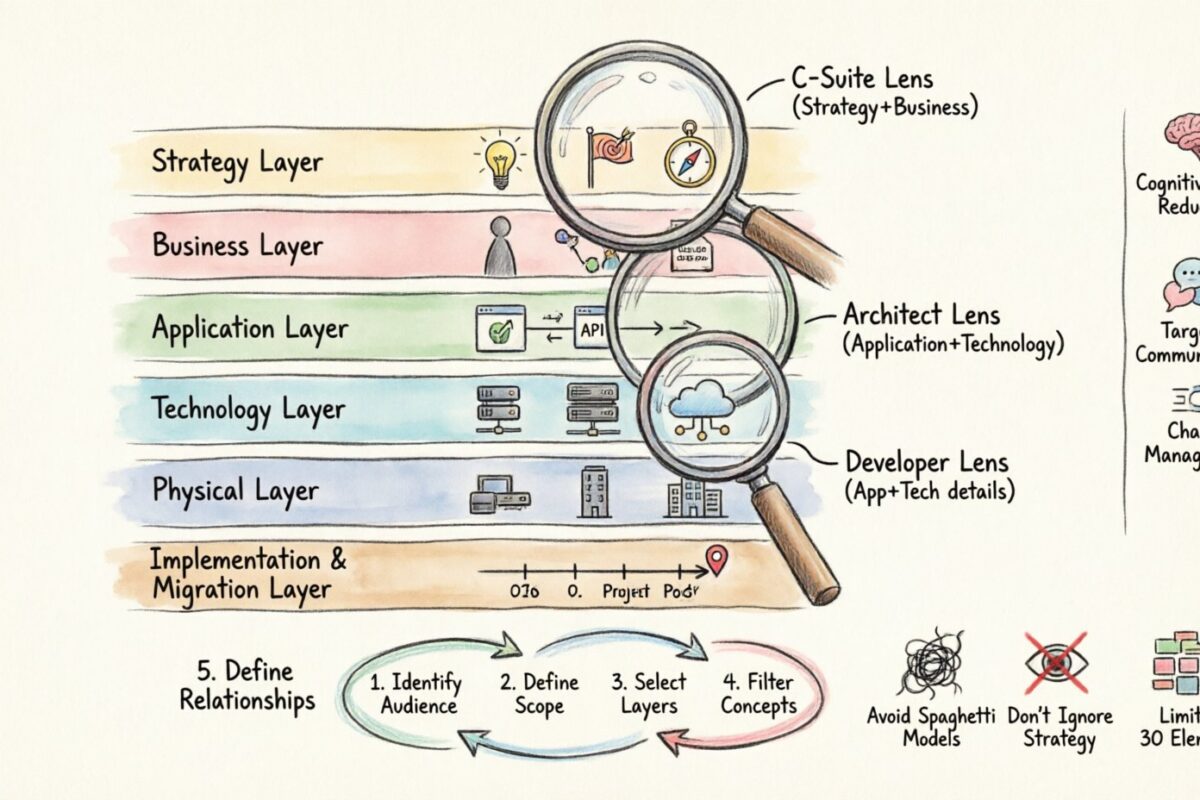 C-Suite Lens
(Strategy+Business)
Strategy Layer
Business Layer
Application Layer
API
Architect Lens
(Application+Technology)
Technology Layer
Developer Lens
(App+Tech details)
Physical Layer
Implementation &
Migration Layer
0.
Project
5. Define
Relationships
1. Identify
Audience
2. Define
Scope
3. Select
Layers
4. Filter
Concepts
Avoid Spaghetti
Models
Don't Ignore
Strategy
Limit
30 Elem
Cognitiv
Redu
Targe
Commun
Cha
Manag